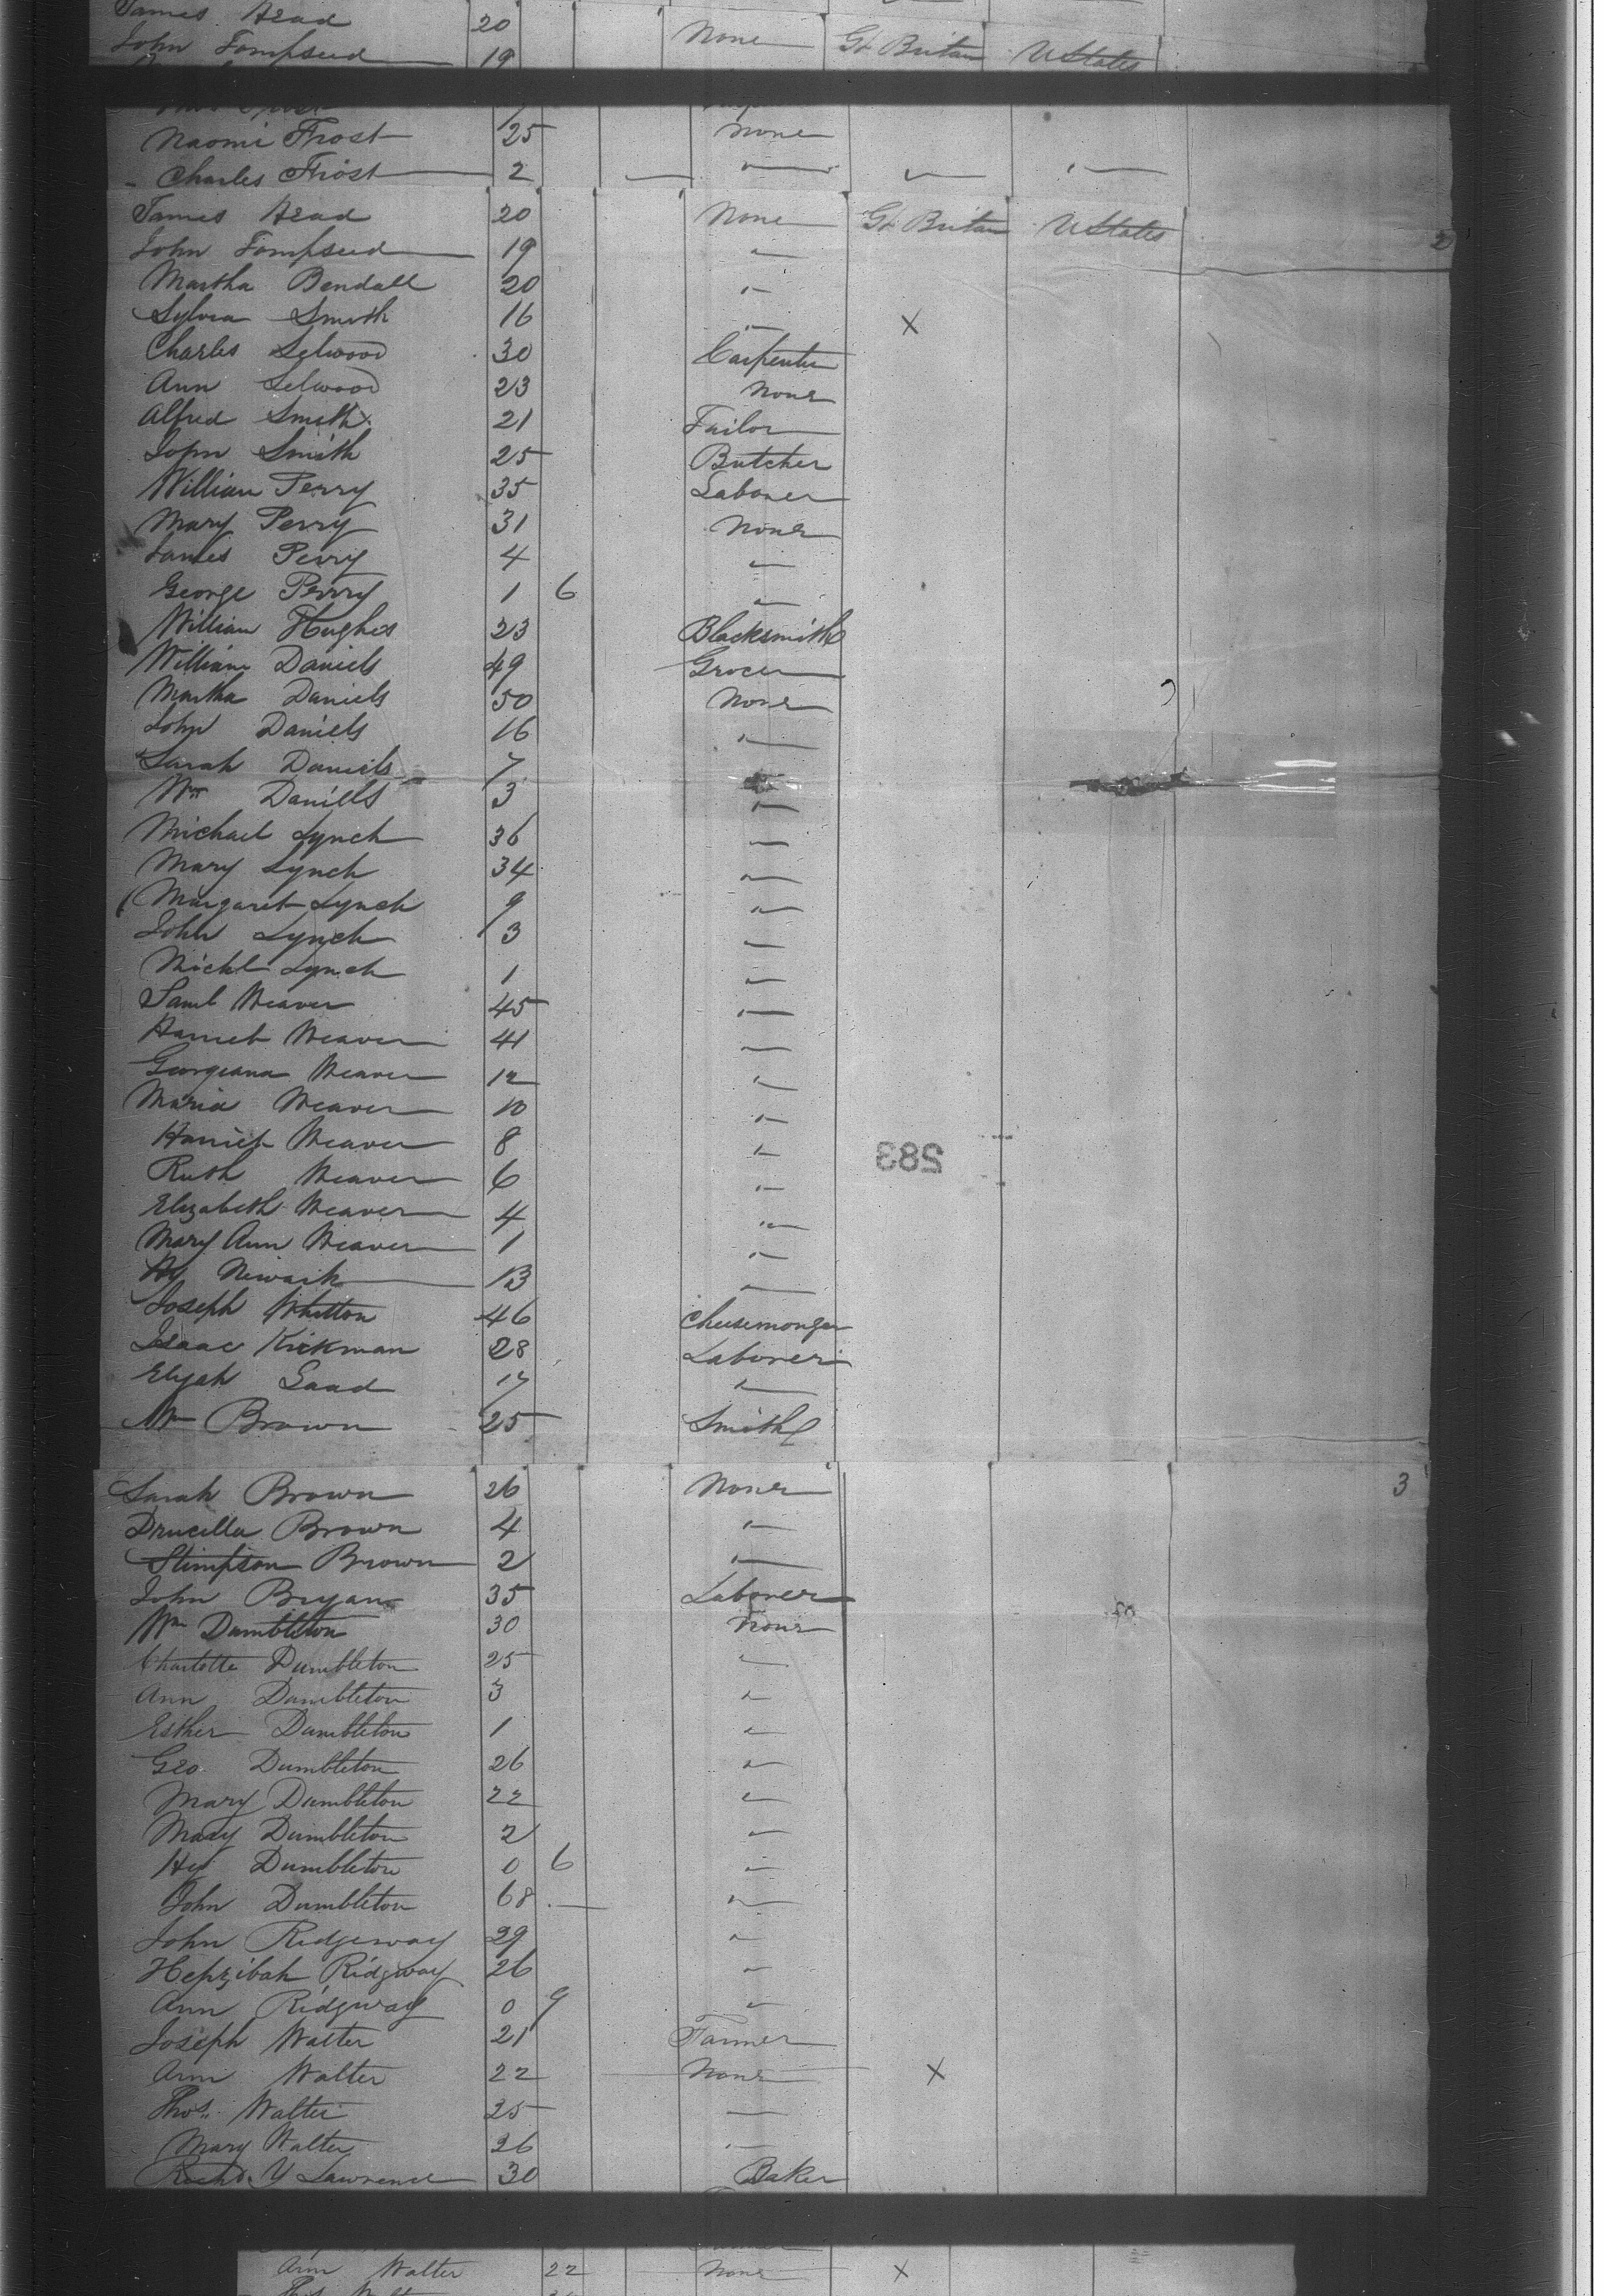 James Head 20 None Gt Britain U States
John Tompseed 19
Naomi Frost 25 None
Charles Frost 2 — — — —
James Head 20 None Gt Britain U States 2
John Tompseed 19 "
Martha Bendall 20 "
Sylvia Smith 16 " X
Charles Selwood 30 Carpenter
Ann Selwood 23 None
Alfred Smith 21 Tailor
John Smith 25 Butcher
William Perry 35 Laborer
Mary Perry 31 None
James Perry 4 "
George Perry 1 6 "
William Hughes 23 Blacksmith
William Daniels 49 Grocer
Martha Daniels 50 None
John Daniels 16 "
Sarah Daniels 7
Wm Daniels 3 "
Michael Lynch 36 "
Mary Lynch 34 "
Margaret Lynch 9 "
John Lynch 3 "
Michl Lynch 1 "
Saml Weaver 45 "
Harriet Weaver 41 "
Georgeana Weaver 12 "
Maria Weaver 10 "
Harriet Weaver 8 "
283
Ruth Weaver 6 "
Elizabeth Weaver 4 "
Mary Ann Weaver 1 "
Hy Newark 13 "
Joseph Whitton 46 Cheesemonger
Isaac Kirkman 28 Laborer
Elijah Saad 17 "
Wm Brown 25 Smith
Sarah Brown 26 None 3
Drucilla Brown 4 "
Stimpson Brown 2 "
John Bryan 35 Laborer
Wm Dumbleton 30 None
Charlotte Dumbleton 25 "
Ann Dumbleton 3 "
Esther Dumbleton 1 "
Geo Dumbleton 26 "
Mary Dumbleton 22 "
Mary Dumbleton 2 "
Hy Dumbleton 0 6 "
John Dumbleton 68 "
John Ridgeway 29 "
Hepzibah Ridgway 26 "
Ann Ridgway 0 9 "
Joseph Walter 21 Farmer
Ann Walter 22 None X
Thos. Walter 25 "
Mary Walter 26 "
Richd. Y Lawrence 30 Baker
Ann Walter 22 None X